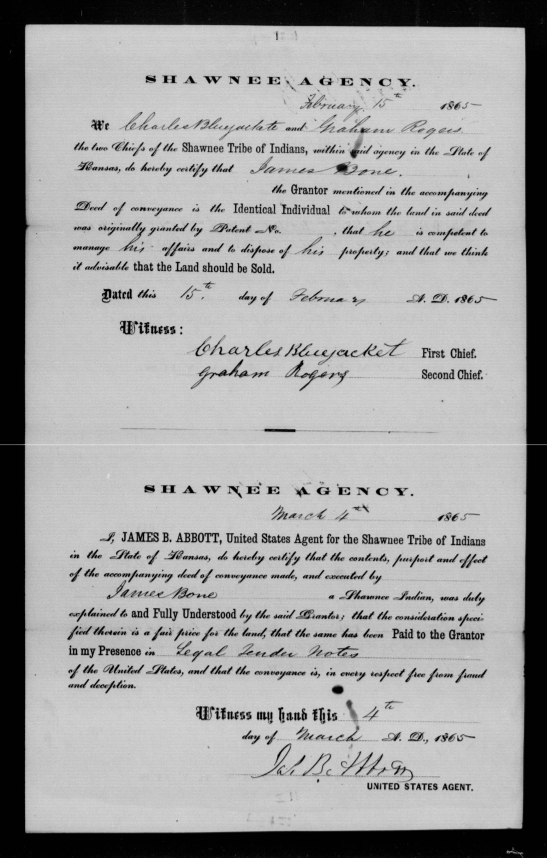 SHAWNEE AGENCY.
February 15th 1865
We Charles Bluejackete and Graham Rogers
the two Chiefs of the Shawnee Tribe of Indians, within said agency in the State of
Kansas, do hereby certify that James Bone.
the Grantor mentioned in the accompanying
Deed of conveyance is the Identical Individual to whom the land in said deed
was originally granted by Patent No. , that he is competent to
manage his affairs and to dispose of his property; and that we think
it advisable that the Land should be Sold.
Dated this 15th. day of February A. D. 1865
Witness:
Charles Bluejacket First Chief.
Graham Rogers Second Chief.
SHAWNEE AGENCY.
March 4th 1865
I, JAMES B. ABBOTT, United States Agent for the Shawnee Tribe of Indians
in the State of Kansas, do hereby certify that the contents, purport and effect
of the accompanying deed of conveyance made, and executed by
James Bone a Shawnee Indian, was duly
explained to and Fully Understood by the said Grantor; that the consideration speci-
fied therein is a fair price for the land, that the same has been Paid to the Grantor
in my Presence in Legal Tender Notes
of the United States, and that the conveyance is, in every respect free from fraud
and deception.
Witness my hand this 4th
day of March A. D., 1865
Jas B. Abbott
UNITED STATES AGENT.